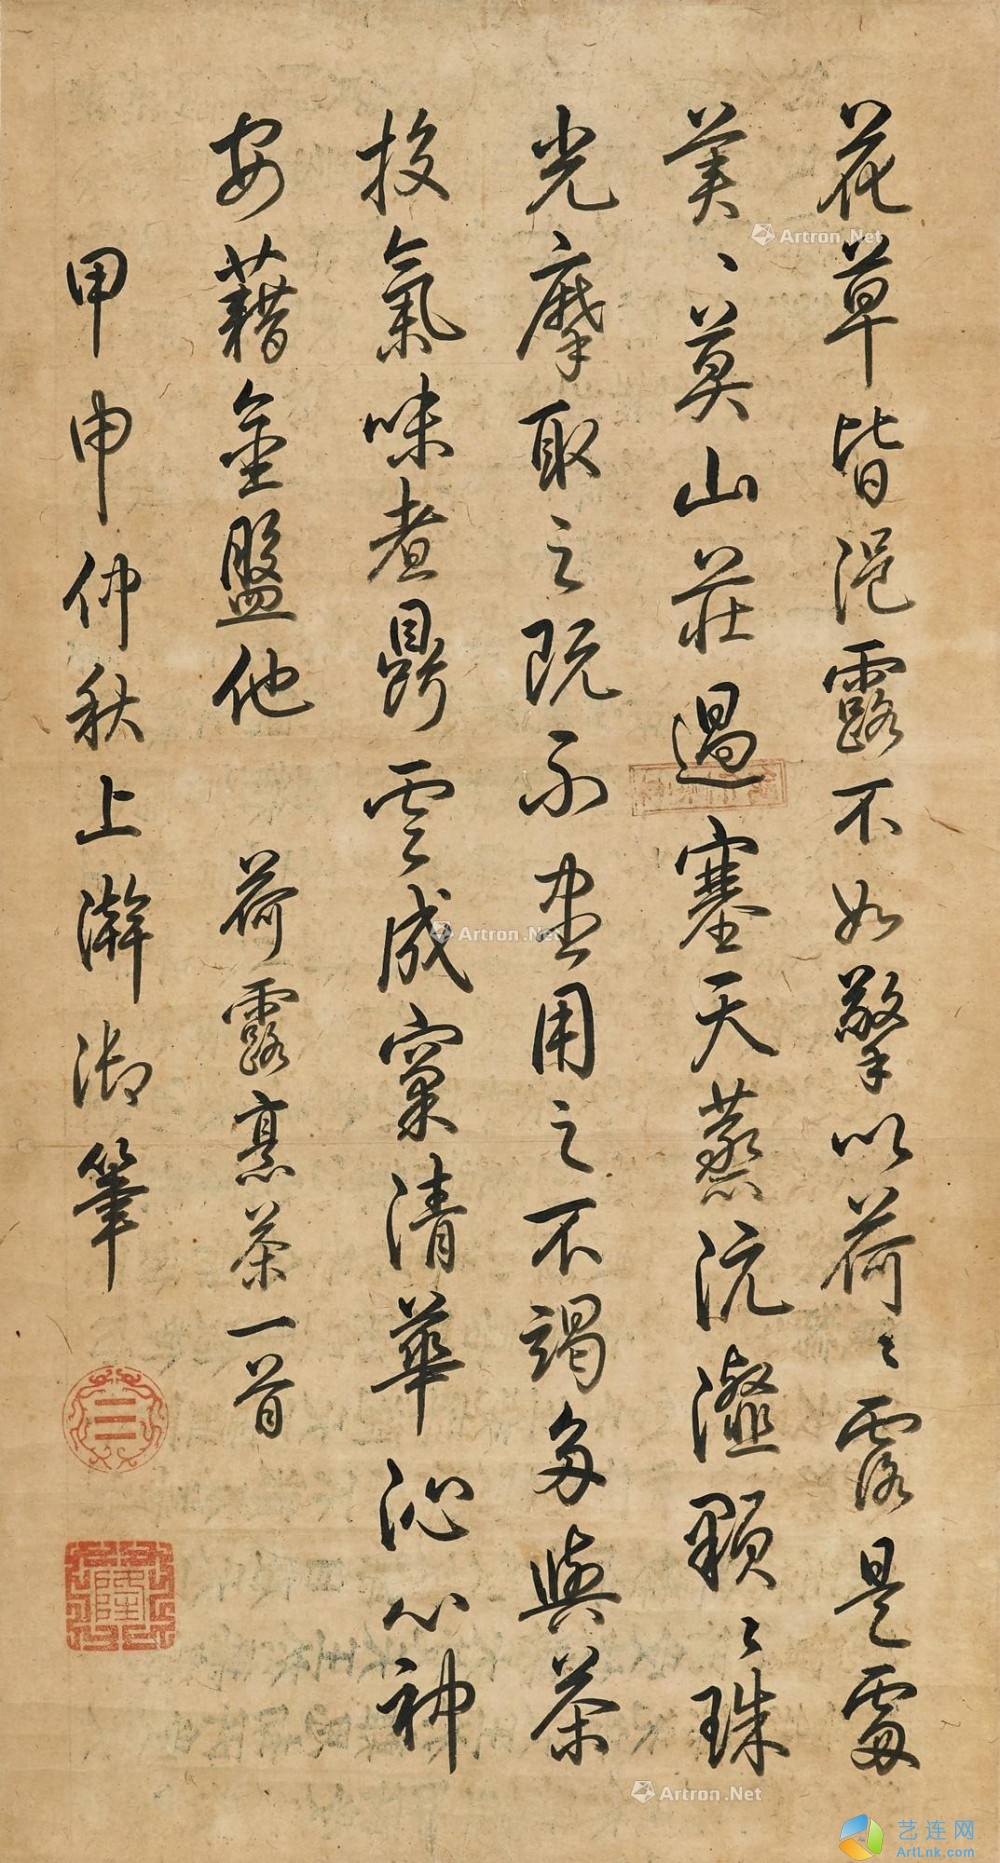 花草皆浥露不如擎以荷〻露是處
美〻莫山莊過塞天蒸沆瀣顆〻珠
光摩取之既不盡用之不竭多與茶
投氣味煮鼎雲成窠清華沁心神
安藉金盤他　荷露烹茶一首
甲申仲秋上澣御筆
隆
Artron.Net
Artron.Net
Artron.Net
艺连网
ArtLnk.com